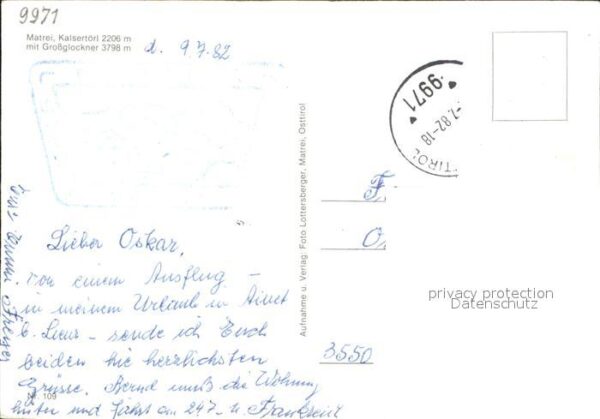 9971
Matrei, Kalsertörl 2206 m
mit Großglockner 3798 m
d. 9.7.82
9971
-7.82-18
TIROL
Aufnahme u. Verlag: Foto Lottersberger, Matrei, Osttirol
F
O
3550
privacy protection
Datenschutz
Lieber Oskar,
von einem Ausflug –
in meinem Urlaub in Ainet
b. Lienz – sende ich Euch
beiden die herzlichsten
Grüsse. Bernd muß die Wohnung
Nr. 109
hüten und fährt am 24.7. n. Frankreich